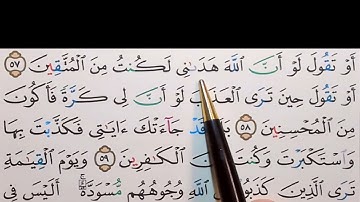 أَوْ تَقُولَ لَوْ أَنَّ ٱللَّهَ هَدَىٰنِى لَكُنتُ مِنَ ٱلْمُتَّقِينَ ٥٧
أَوْ تَقُولَ حِينَ تَرَى ٱلْعَذَابَ لَوْ أَنَّ لِى كَرَّةً فَأَكُونَ
مِنَ ٱلْمُحْسِنِينَ ٥٨ قَدْ جَآءَتْكَ ءَايَـٰتِى فَكَذَّبْتَ بِهَا
وَٱسْتَكْبَرْتَ وَكُنتَ ٱلْكَـٰفِرِينَ ٥٩ وَيَوْمَ ٱلْقِيَـٰمَةِ
تَرَى ٱلَّذِينَ كَذَبُوا۟ ٱللَّهِ وُجُوهُهُم مُّسْوَدَّةٌ ۚ أَلَيْسَ فِى